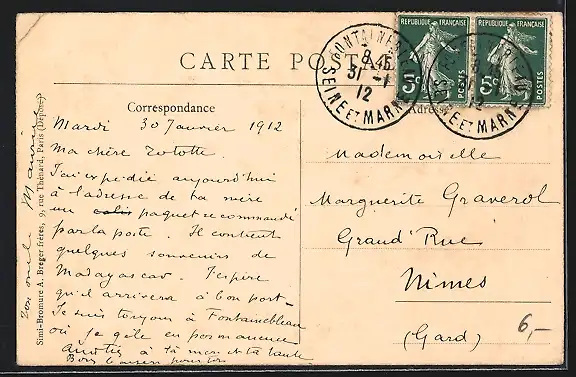 CARTE POSTALE
RÉPUBLIQUE FRANÇAISE
RÉPUBLIQUE FRANÇAISE
5c POSTES
5c POSTES
8 45
31 -1
12
SEINE ET MARNE
12
SEINE ET MARNE
Correspondance
Mardi 30 Janvier 1912
Ma chère Tototte.
J'ai expédié aujourd'hui
à l'adresse de ta mère
un colis paquet recommandé
par la poste. Il contient
quelques souvenirs de
Madagascar. J'espère
qu'il arrivera à bon port.
Je suis toujours à Fontainebleau
où je gèle en permanence
à ta mère et ta tante
Bons baisers pour toi
Ton oncle Maurice
Simili-Bromure A. Breger frères, 9, rue Thénard, Paris (Déposé)
Mademoiselle
Marguerite Graverol
Grand'Rue
Nimes
(Gard)
6,-